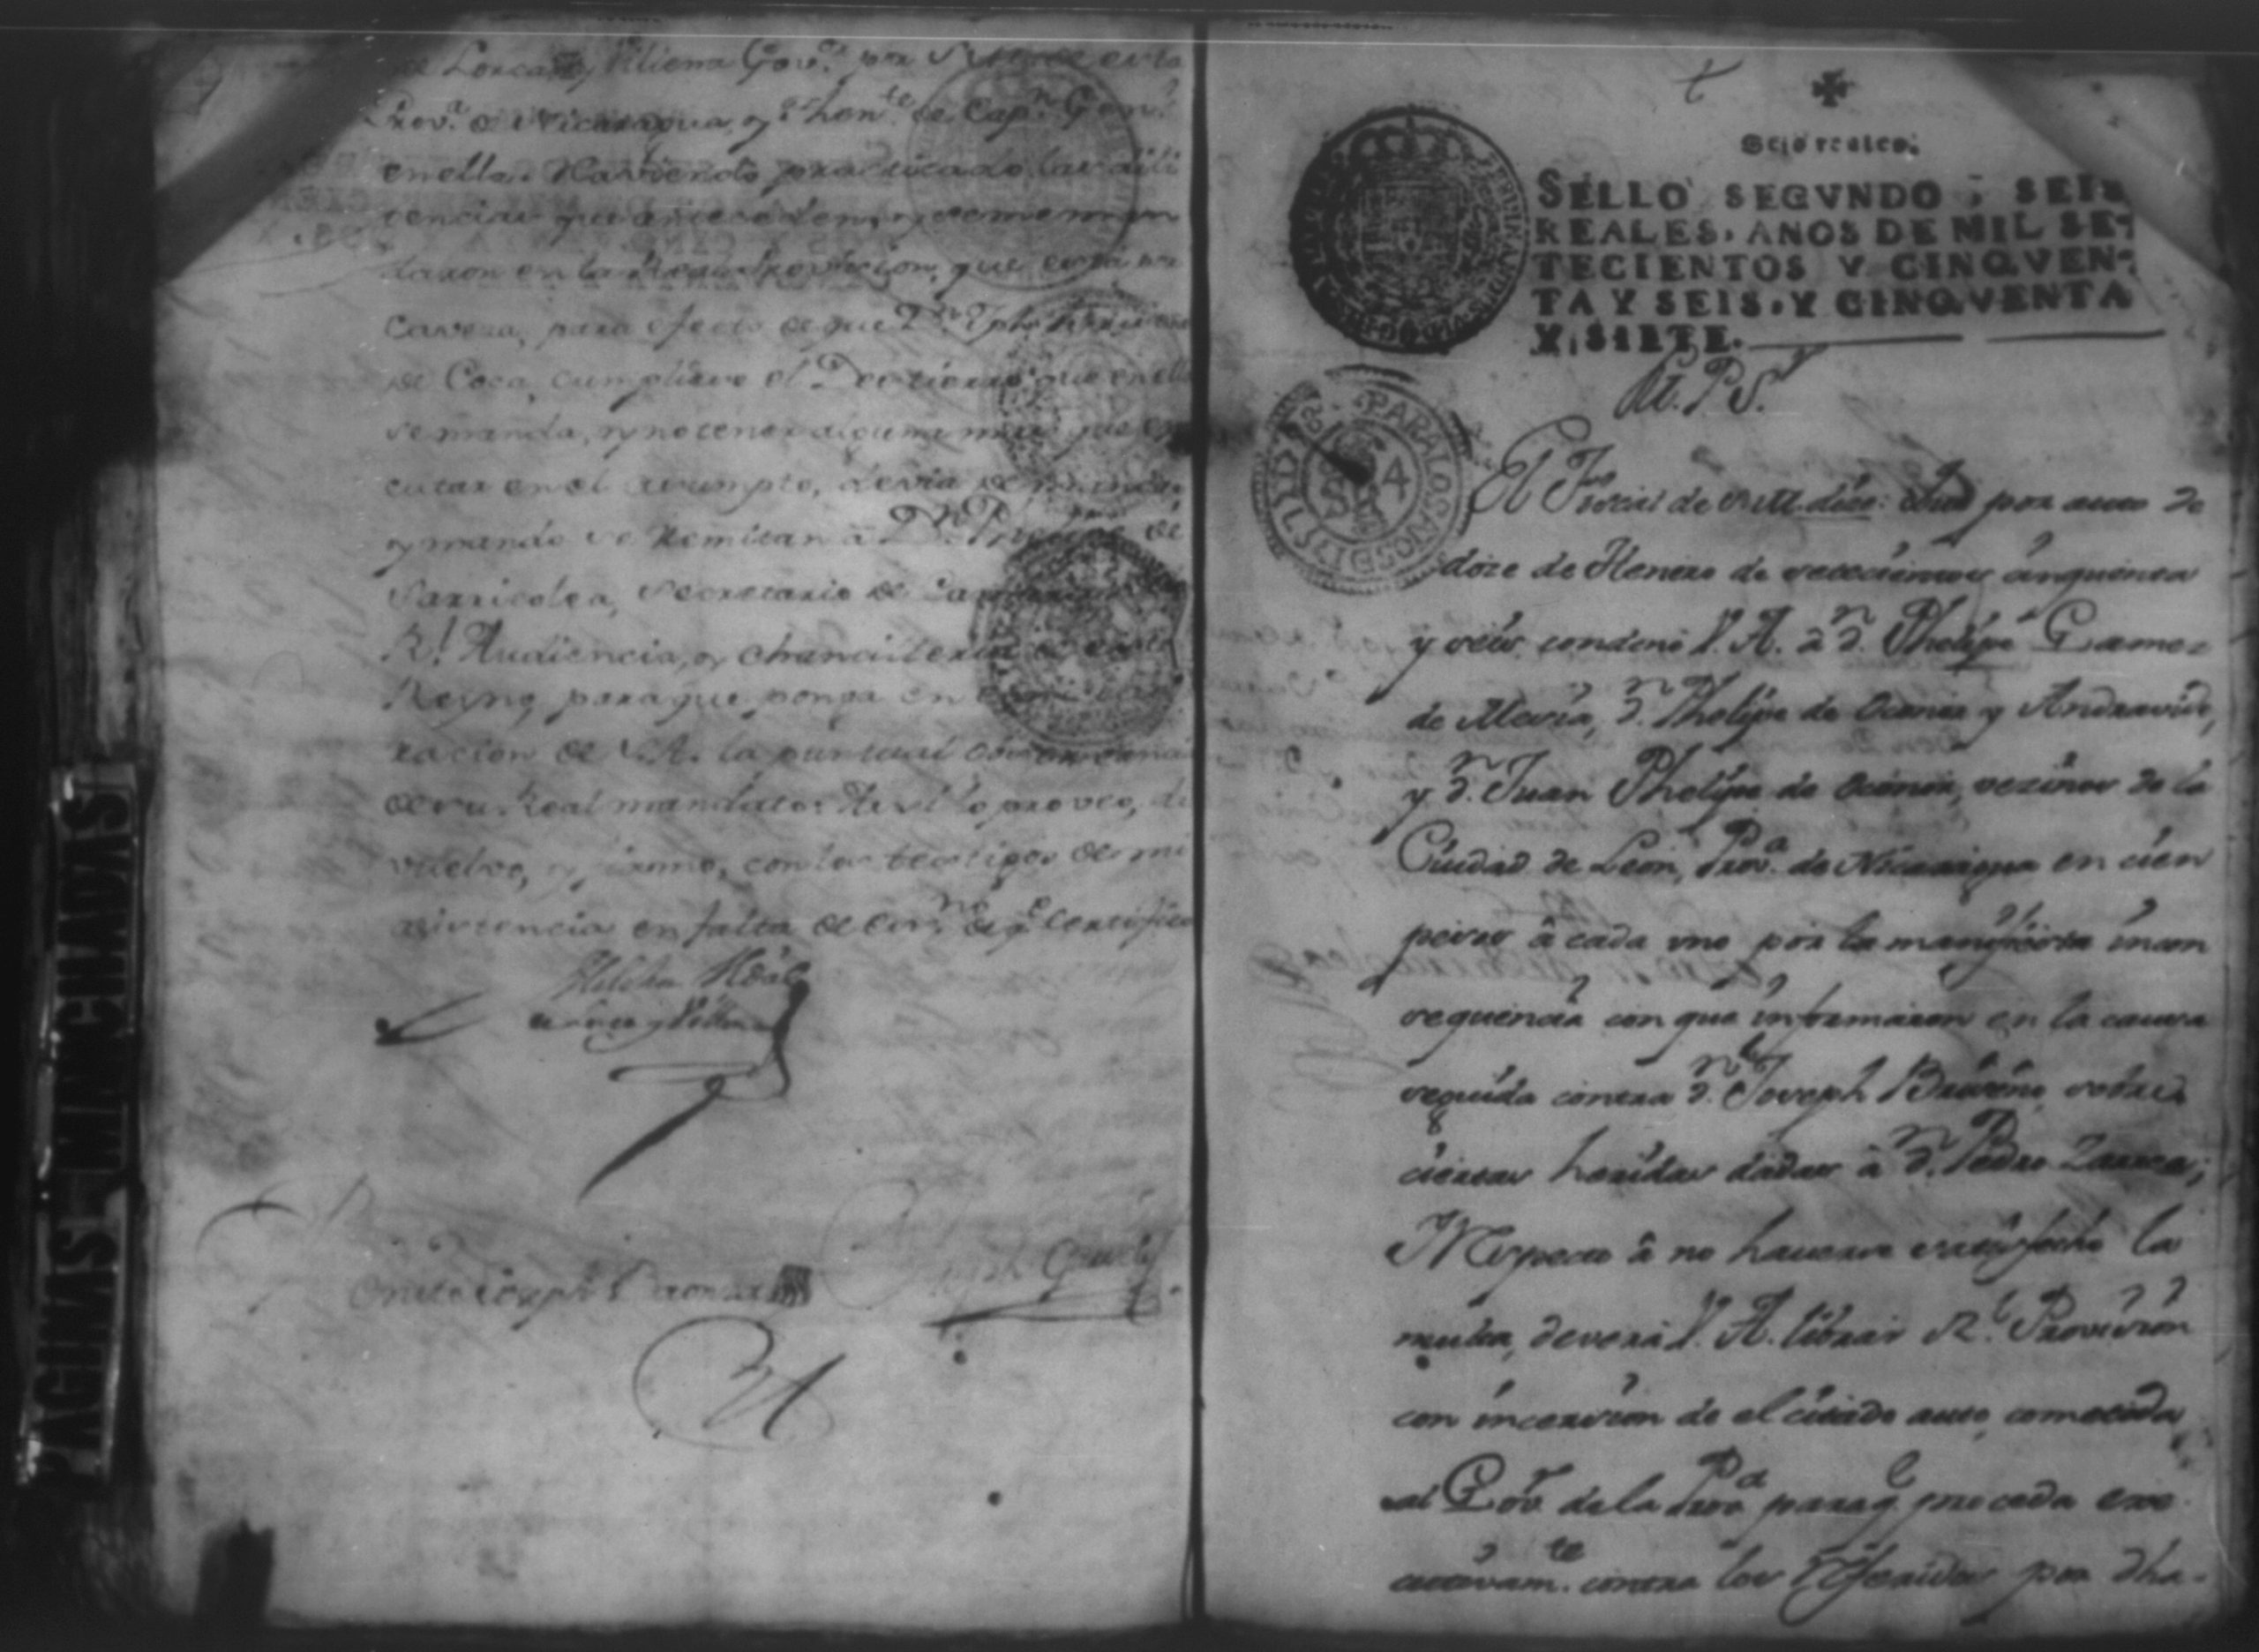 de Lorca y Villena Gov.or por S. M. de esta
Prov.a de Nicaragua, y Then.te de Cap.n Gen.l
en ella. Haviendo practicado las dili
gencias que anteceden, y se me man
daron en la Real Provicion, que está por
Caveza, para efecto de que D.n
de Coca, cumpliese el Destierro que en ella
se manda, y no tener alguna mas que exe
cutar en el asumpto, devia de mandar
y mandó se Remitan â D.n Phelipe de
Sarricolea, Secretario de Camara
R.l Audiencia, y chancilleria de este
Reyno, para que ponga en
racion de V.A. la puntual observancia
de su Real mandato: Assi lo proveo, de
vuelvo, y firmo, con los testigos de mi
asistencia en falta de Ess.no de q.e Certifico
Melchor Vidal
de Lorca y Villena
Joseph
PAGINAS MANCHADAS
Seis reales.
SELLO SEGVNDO, SEIS
REALES, AÑOS DE MIL SE-
TECIENTOS Y CINQVEN-
TA Y SEIS, Y CINQVENTA
Y SIETE.
M. P. S.r
PARA LOS AÑOS DE
El Fiscal de V. A. dice: Que por auto de
doze de Henero de setecientos cinquenta
y seis condenó V. A. â d.n Phelipe Gamez
de Mesia, d.n Phelipe de Ocónor y Andravide,
y d.n Juan Phelipe de Ocónor, vezinos de la
Ciudad de Leon, Prov.a de Nicaragua en cien
pesos â cada uno por la manifiesta incon
sequencia con que informaron en la causa
seguida contra d.n Joseph Briseño, sobre
ciertas heridas dadas â d.n Pedro Zarrea;
Respecto â no haverse satisfecho la
multa, deverá V. A. librar R.l Provision
con incersion de el citado auto, cometida
al Gov.or de la Prov.a para q.e proceda exe
cutivam.te contra los Referidos por dha.